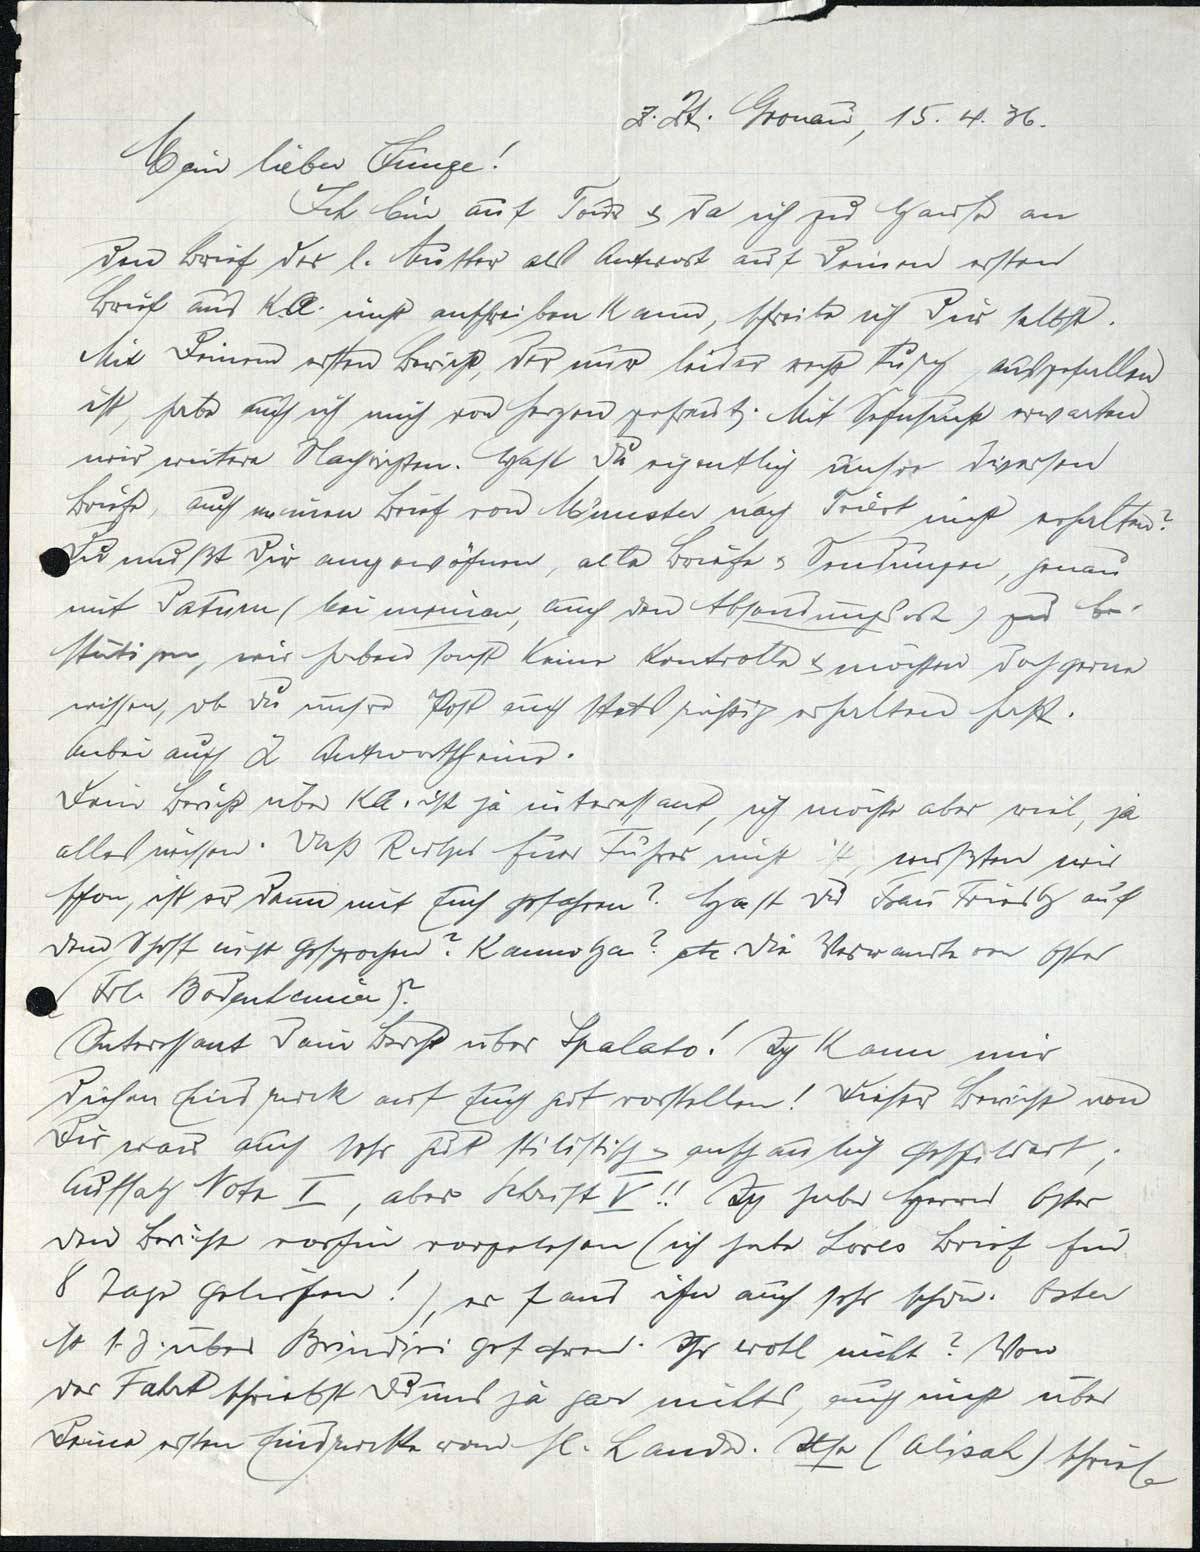 z. Zt. Gronau, 15. 4. 36.
Mein lieber Junge!
Ich bin auf Tour & da ich zu Hause an
den Brief der l. Mutter als Antwort auf Deinen ersten
Brief aus K.A. nicht anschreiben kann, schreibe ich Dir selbst.
Mit Deinem ersten Bericht, der nur leider recht kurz ausgefallen
ist, habe auch ich mich von Herzen gefreut. Mit Sehnsucht erwarten
wir weitere Nachrichten. Hast Du eigentlich unsre diversen
Briefe, auch meinen Brief von Münster nach Triest nicht erhalten?
Du mußt Dir angewöhnen, alle Briefe & Sendungen, genau
mit Datum (bei meinen, auch den Absendungsort) zu be-
stätigen, wir haben sonst keine Kontrolle & möchten doch gerne
wissen, ob Du unsre Post auch stets richtig erhalten hast.
Anbei auch 2 Antwortscheine.
Dein Bericht über K.A. ist ja interessant, ich möchte aber viel, ja
alles wissen. Daß Euer Führer nicht ist, wußten wir
schon, ist er denn mit Euch gefahren? Hast Du Frau auf
dem Schiff nicht gesprochen? etc. die Verwandte von Oster
(Frl. )?
Interessant Dein Bericht über Spalato! Ich kann mir
diesen Eindruck auf Euch gut vorstellen! Dieser Bericht von
Dir war auch sehr gut stilistisch & anschaulich geschildert;
Aufsatz Note I, aber Schrift V!! Ich habe Herrn Oster
den Bericht vorhin vorgelesen (ich habe Lores Brief für
8 Tage geliehen!), er fand ihn auch sehr schön. Oster
ist s. Z. über Brindisi gefahren. Ihr wohl nicht? Von
der Fahrt schriebst Du uns ja gar nichts, auch nicht über
Deine ersten Eindrücke vom hl. Lande. Ilse (Alisah) schrieb